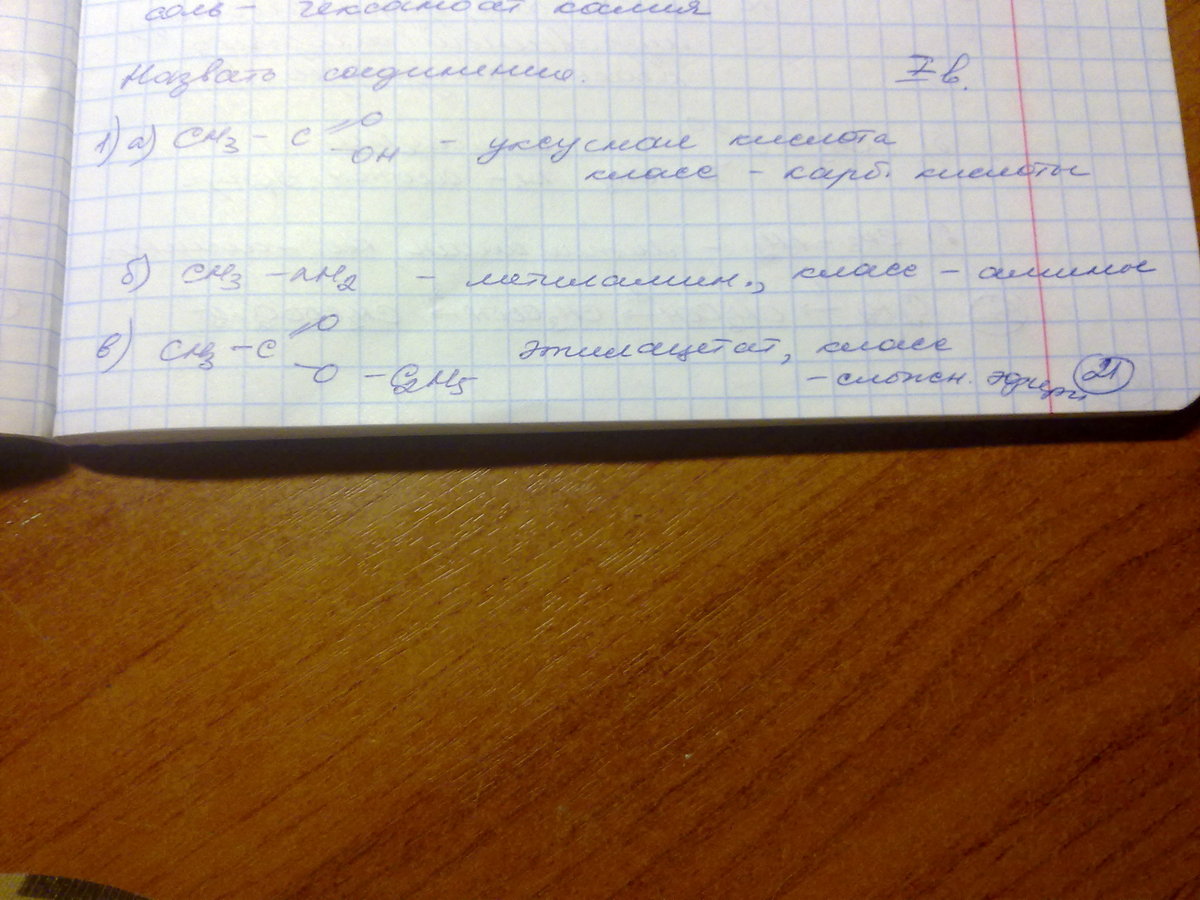 соль - гексаноат калия
Назвать соединение. I в.
1) а) CH3 - C =O -OH - уксусная кислота
класс - карб. кислоты
б) CH3 - NH2 - метиламин., класс - амины
в) CH3 - C =O -O - C2H5 этилацетат, класс
- сложн. эфиры 21